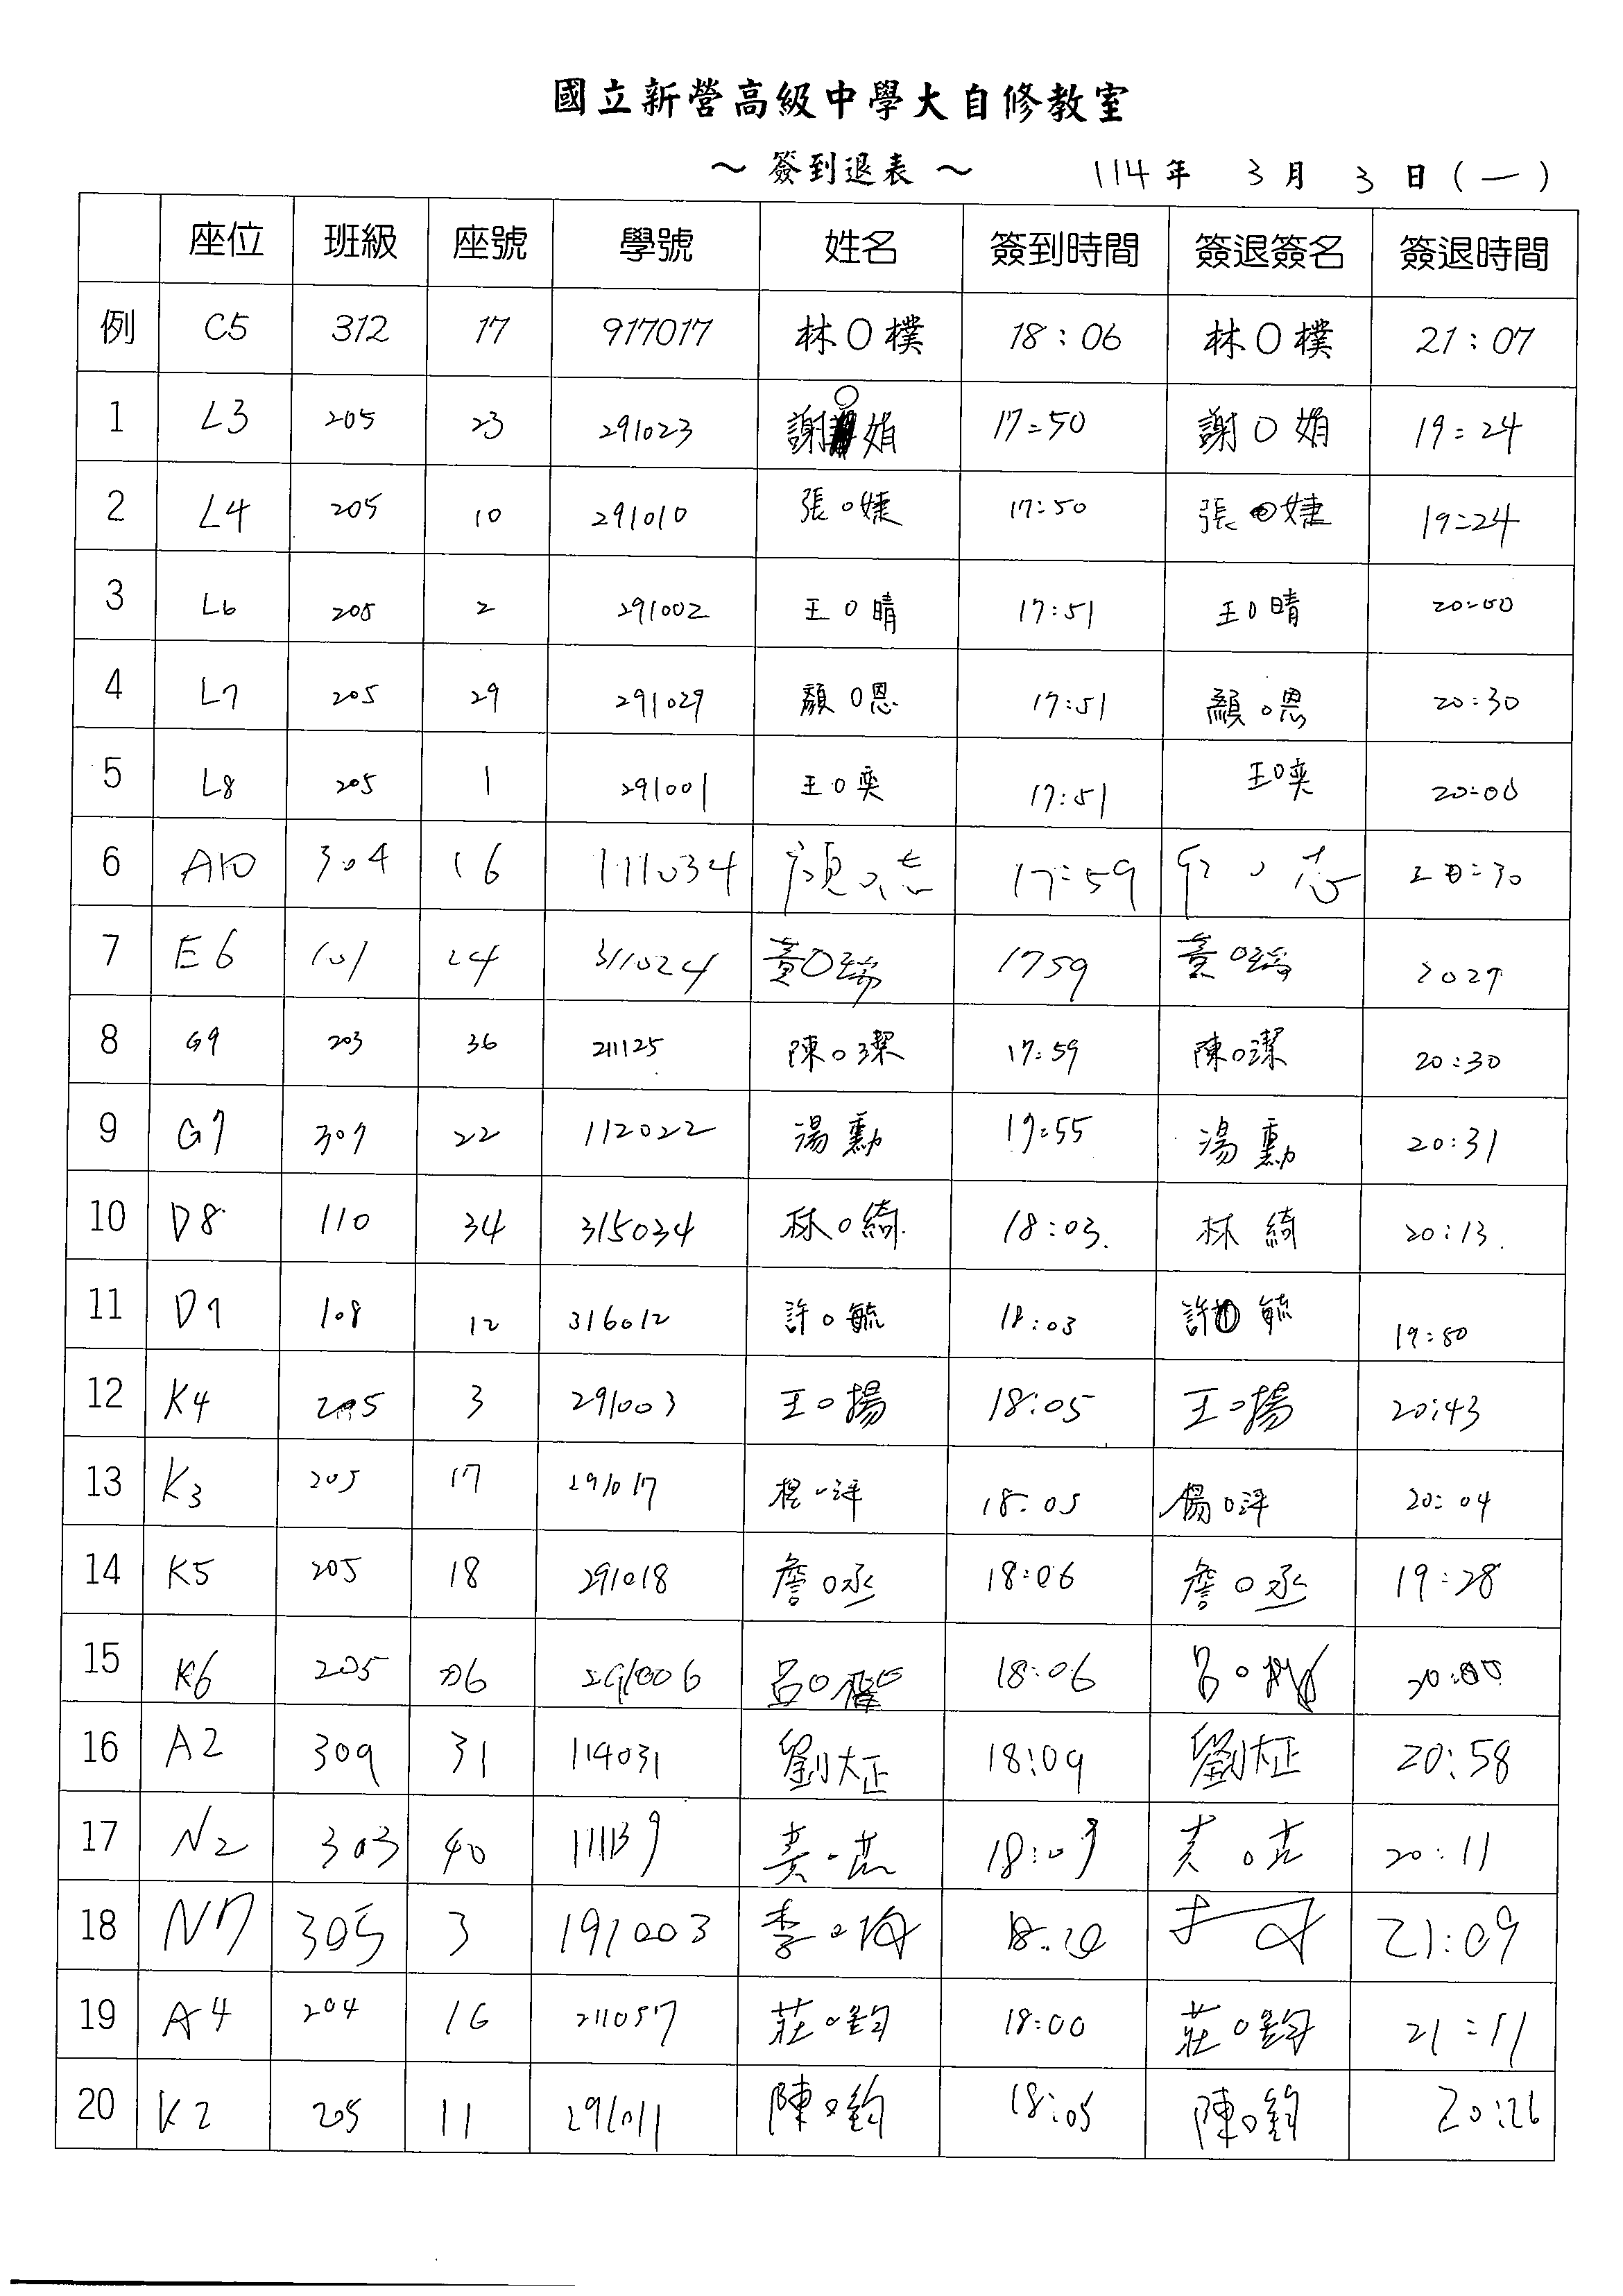 國立新營高級中學大自修教室
～ 簽到退表 ～ 114年 3月 3日(一)
座位 班級 座號 學號 姓名 簽到時間 簽退簽名 簽退時間
例 C5 312 17 917017 林O樸 18:06 林O樸 21:07
1 L3 205 23 291023 謝O娟 17:50 謝O娟 19:24
2 L4 205 10 291010 張O婕 17:50 張O婕 19:24
3 L6 205 2 291002 王O晴 17:51 王O晴 20:00
4 L7 205 29 291029 顏O恩 17:51 顏O恩 20:30
5 L8 205 1 291001 王O奕 17:51 王O奕 20:00
6 A10 304 16 111034 顏O志 17:59 O志 20:30
7 E6 101 24 311024 黃O瑜 1759 黃O瑜 2027
8 G9 203 36 211125 陳O潔 17:59 陳O潔 20:30
9 G7 307 22 112022 湯勳 17:55 湯勳 20:31
10 D8 110 34 315034 林O綺 18:03 林綺 20:13
11 D9 108 12 316012 許O毓 18:03 許O毓 19:50
12 K4 205 3 291003 王O揚 18:05 王O揚 20:43
13 K3 205 17 291017 楊O洋 18:05 楊O洋 20:04
14 K5 205 18 291018 詹O丞 18:06 詹O丞 19:28
15 K6 205 06 291006 呂O 18:06 呂O 20:00
16 A2 309 31 114031 劉大正 18:09 劉大正 20:58
17 N2 303 40 111139 18:09 20:11
18 N7 305 3 191003 李O 18:10 21:09
19 A4 204 16 211057 莊O鈞 18:00 莊O鈞 21:11
20 K2 205 11 291011 陳O鈞 18:05 陳O鈞 20:26